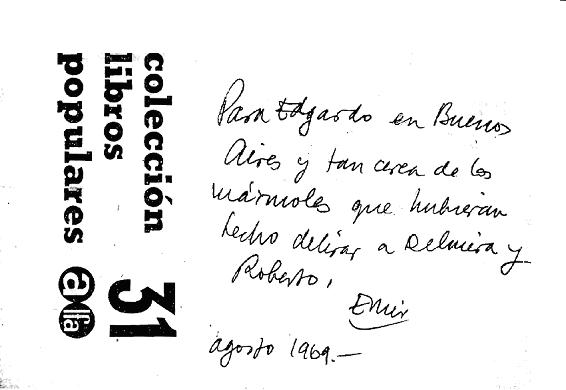 colección
libros
populares
alfa
31
Para Edgardo en Buenos
Aires y tan cerca de los
mármoles que hubieran
hecho delirar a Delmira y
Roberto,
Emir
agosto 1969.—